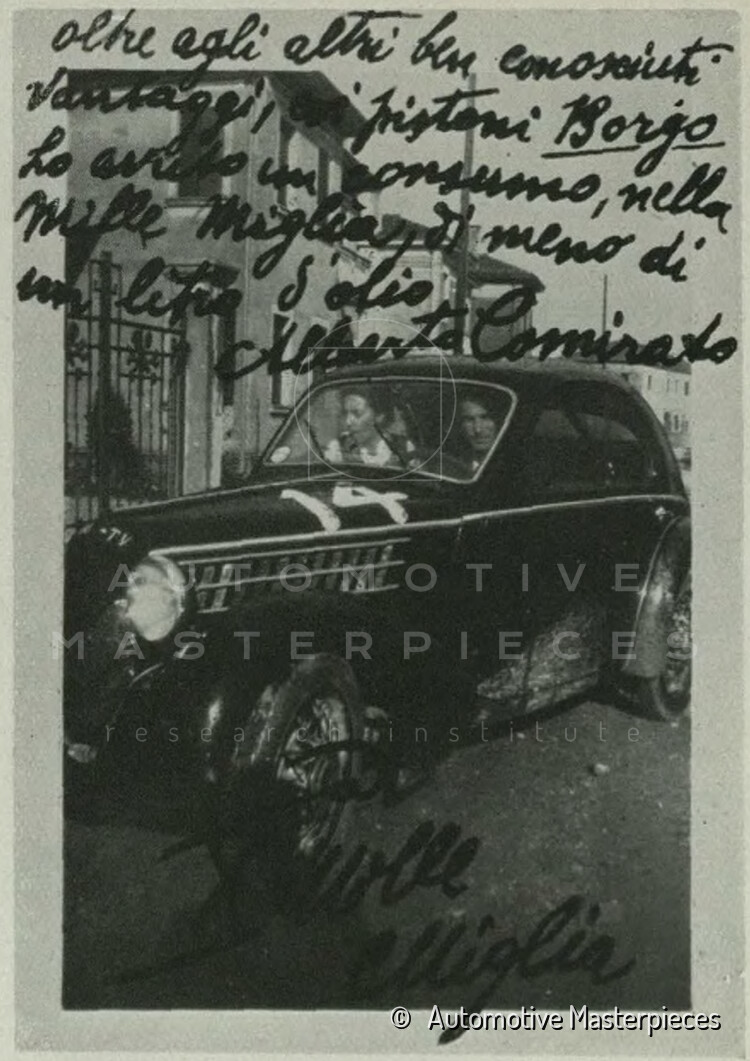 oltre agli altri ben conosciuti
vantaggi, coi pistoni Borgo
ho avuto un consumo, nella
Mille Miglia, di meno di
un litro d'olio
Alberto Comirato
14
TV
AUTOMOTIVE
MASTERPIECES
research institute
Mille
Miglia
© Automotive Masterpieces